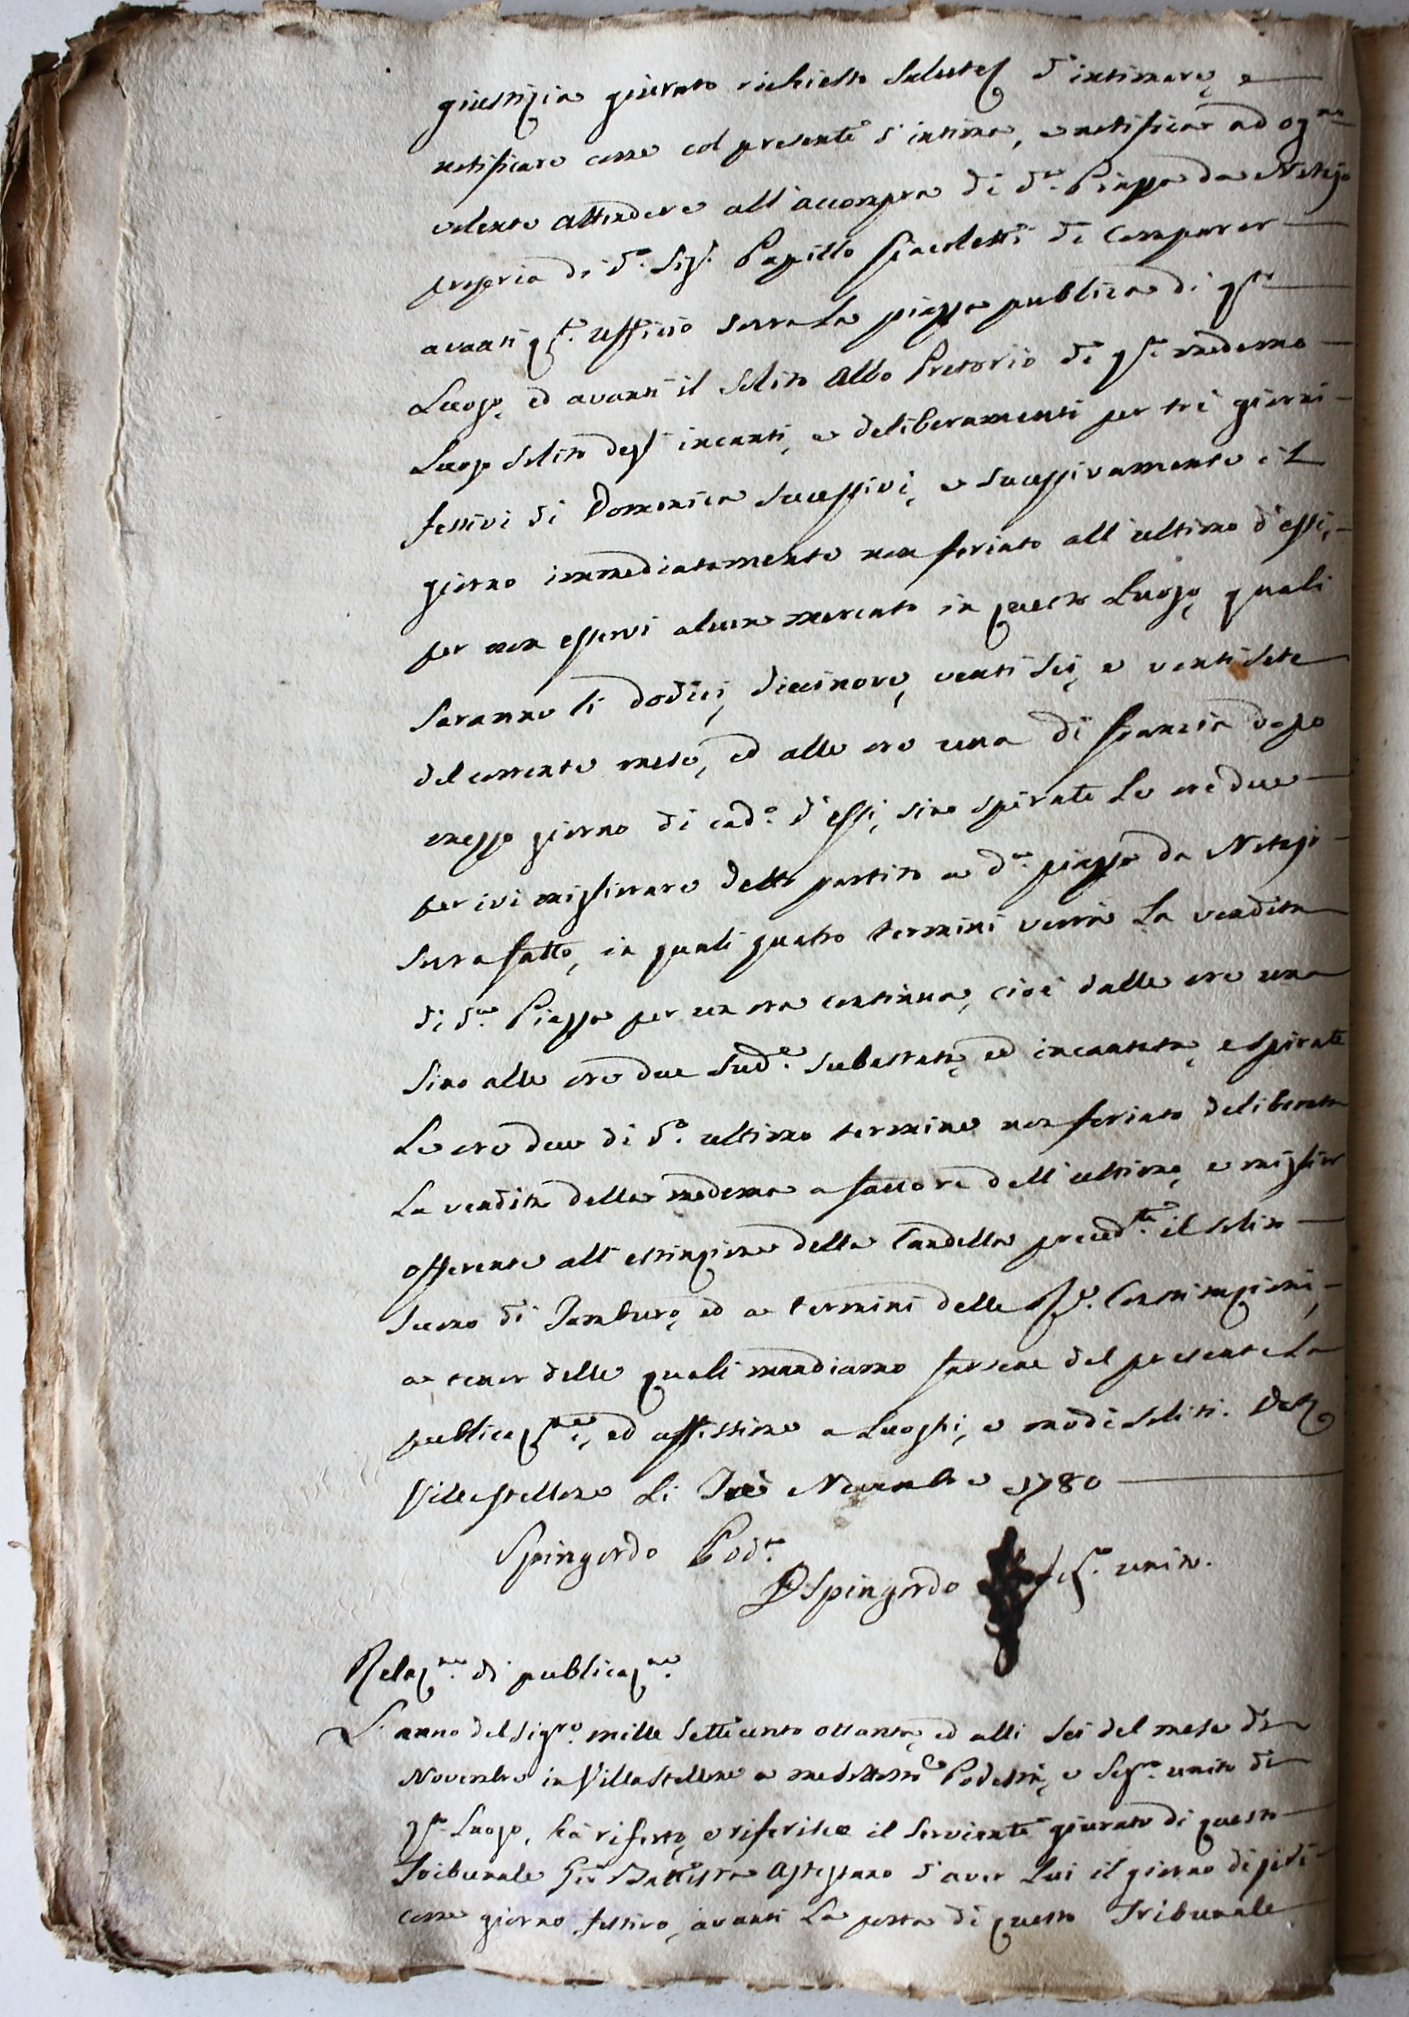 giustizia giurato richiesto salute d'intimare, e
notificare come col presente s'intima, e notificar ad ogn'uno
volente attendere all'accompra di d.ta Piazza da Notajo
propria di d.o Sig.r Papillo Giacoletti di comparer
avanti q.to ufficio sovra La piazza publica di q.to
Luogo, ed avanti il solito Albo Pretorio di q.to medemo
Luogo solito degl'incanti, e deliberamenti per tré giorni
festivi di Domenica sucessivi, e sucessivamente il
giorno immediatamente non feriato all'ultimo d'essi,
per non esservi alcun mercato in questo Luogo, quali
saranno li dodici, diecinove, venti sei, e venti sete
del corrente mese, ed alle ore una di francia dopo
mezzo giorno di cad.o d'essi, sino spirate Le ore due
per ivi migliorare detto partito a d.ta piazza da Notajo
sovra fatto, in quali quatro termini verrà La vendita
di d.ta Piazza per un ora continua, cioè dalle ore una
sino alle ore due sud.e subastata, ed incantata, e spirate
Le ore due di d.o ultimo termine non feriato deliberata
La vendita della medema a favore dell'ultimo, e miglior
offerente all'estinzione della Candella preced.te il solito
suono di Tamburo, ed a termini delle R.e Constituzioni,
a tenor delle quali mandiamo farsene del presente La
publicaz.ne, ed affissione a Luoghi, e modi soliti. Dat.
Villastellone Li Trè Novembre 1780
Spingardo Pod.tà
D Spingardo Seg.ro unito.
Relaz.ne di publicaz.ne
L'anno del Sig.re mille settecento ottanta, ed alli sei del mese di
Novembre in Villastellone a me sottoscritto Podestà, e Seg.ro unito di
q.to Luogo, hà riferto, e riferisce il serviente giurato di questo
Tribunale Gio Battista Astegiano d'aver Lui il giorno di jeri
come giorno festivo, avanti La porta di questo Tribunale